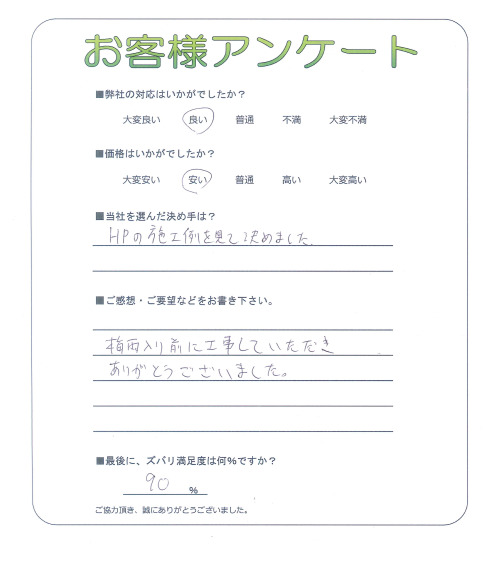 お客様アンケート
■弊社の対応はいかがでしたか？
大変良い 良い 普通 不満 大変不満
■価格はいかがでしたか？
大変安い 安い 普通 高い 大変高い
■当社を選んだ決め手は？
HPの施工例を見て決めました
■ご感想・ご要望などをお書き下さい。
梅雨入り前に工事していただき
ありがとうございました。
■最後に、ズバリ満足度は何％ですか？
90 %
ご協力頂き、誠にありがとうございました。